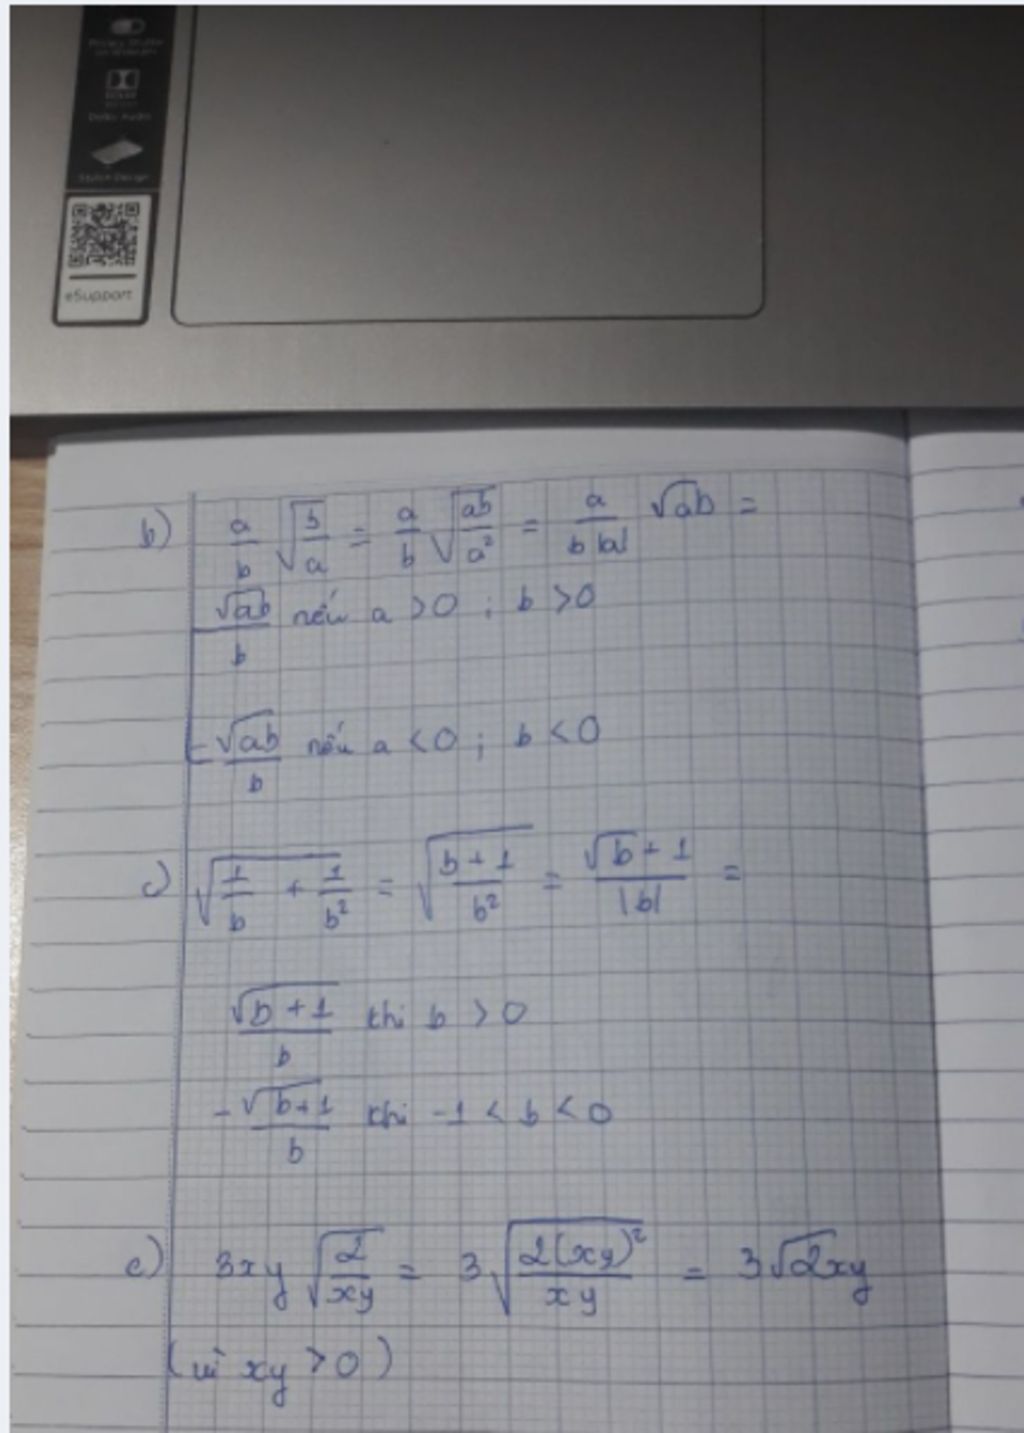 Dolby Audio
eSupport
b) a/b √(b/a) = a/b √(ab/a²) = a/(b|a|) √ab =
√ab/b nếu a > 0 ; b > 0
-√ab/b nếu a < 0 ; b < 0
c) √(1/b + 1/b²) = √((b+1)/b²) = √b+1/|b| =
√(b+1)/b khi b > 0
-√(b+1)/b khi -1 < b < 0
e) 3xy √(2/xy) = 3√(2(xy)²/xy) = 3√2xy
(vì xy > 0)